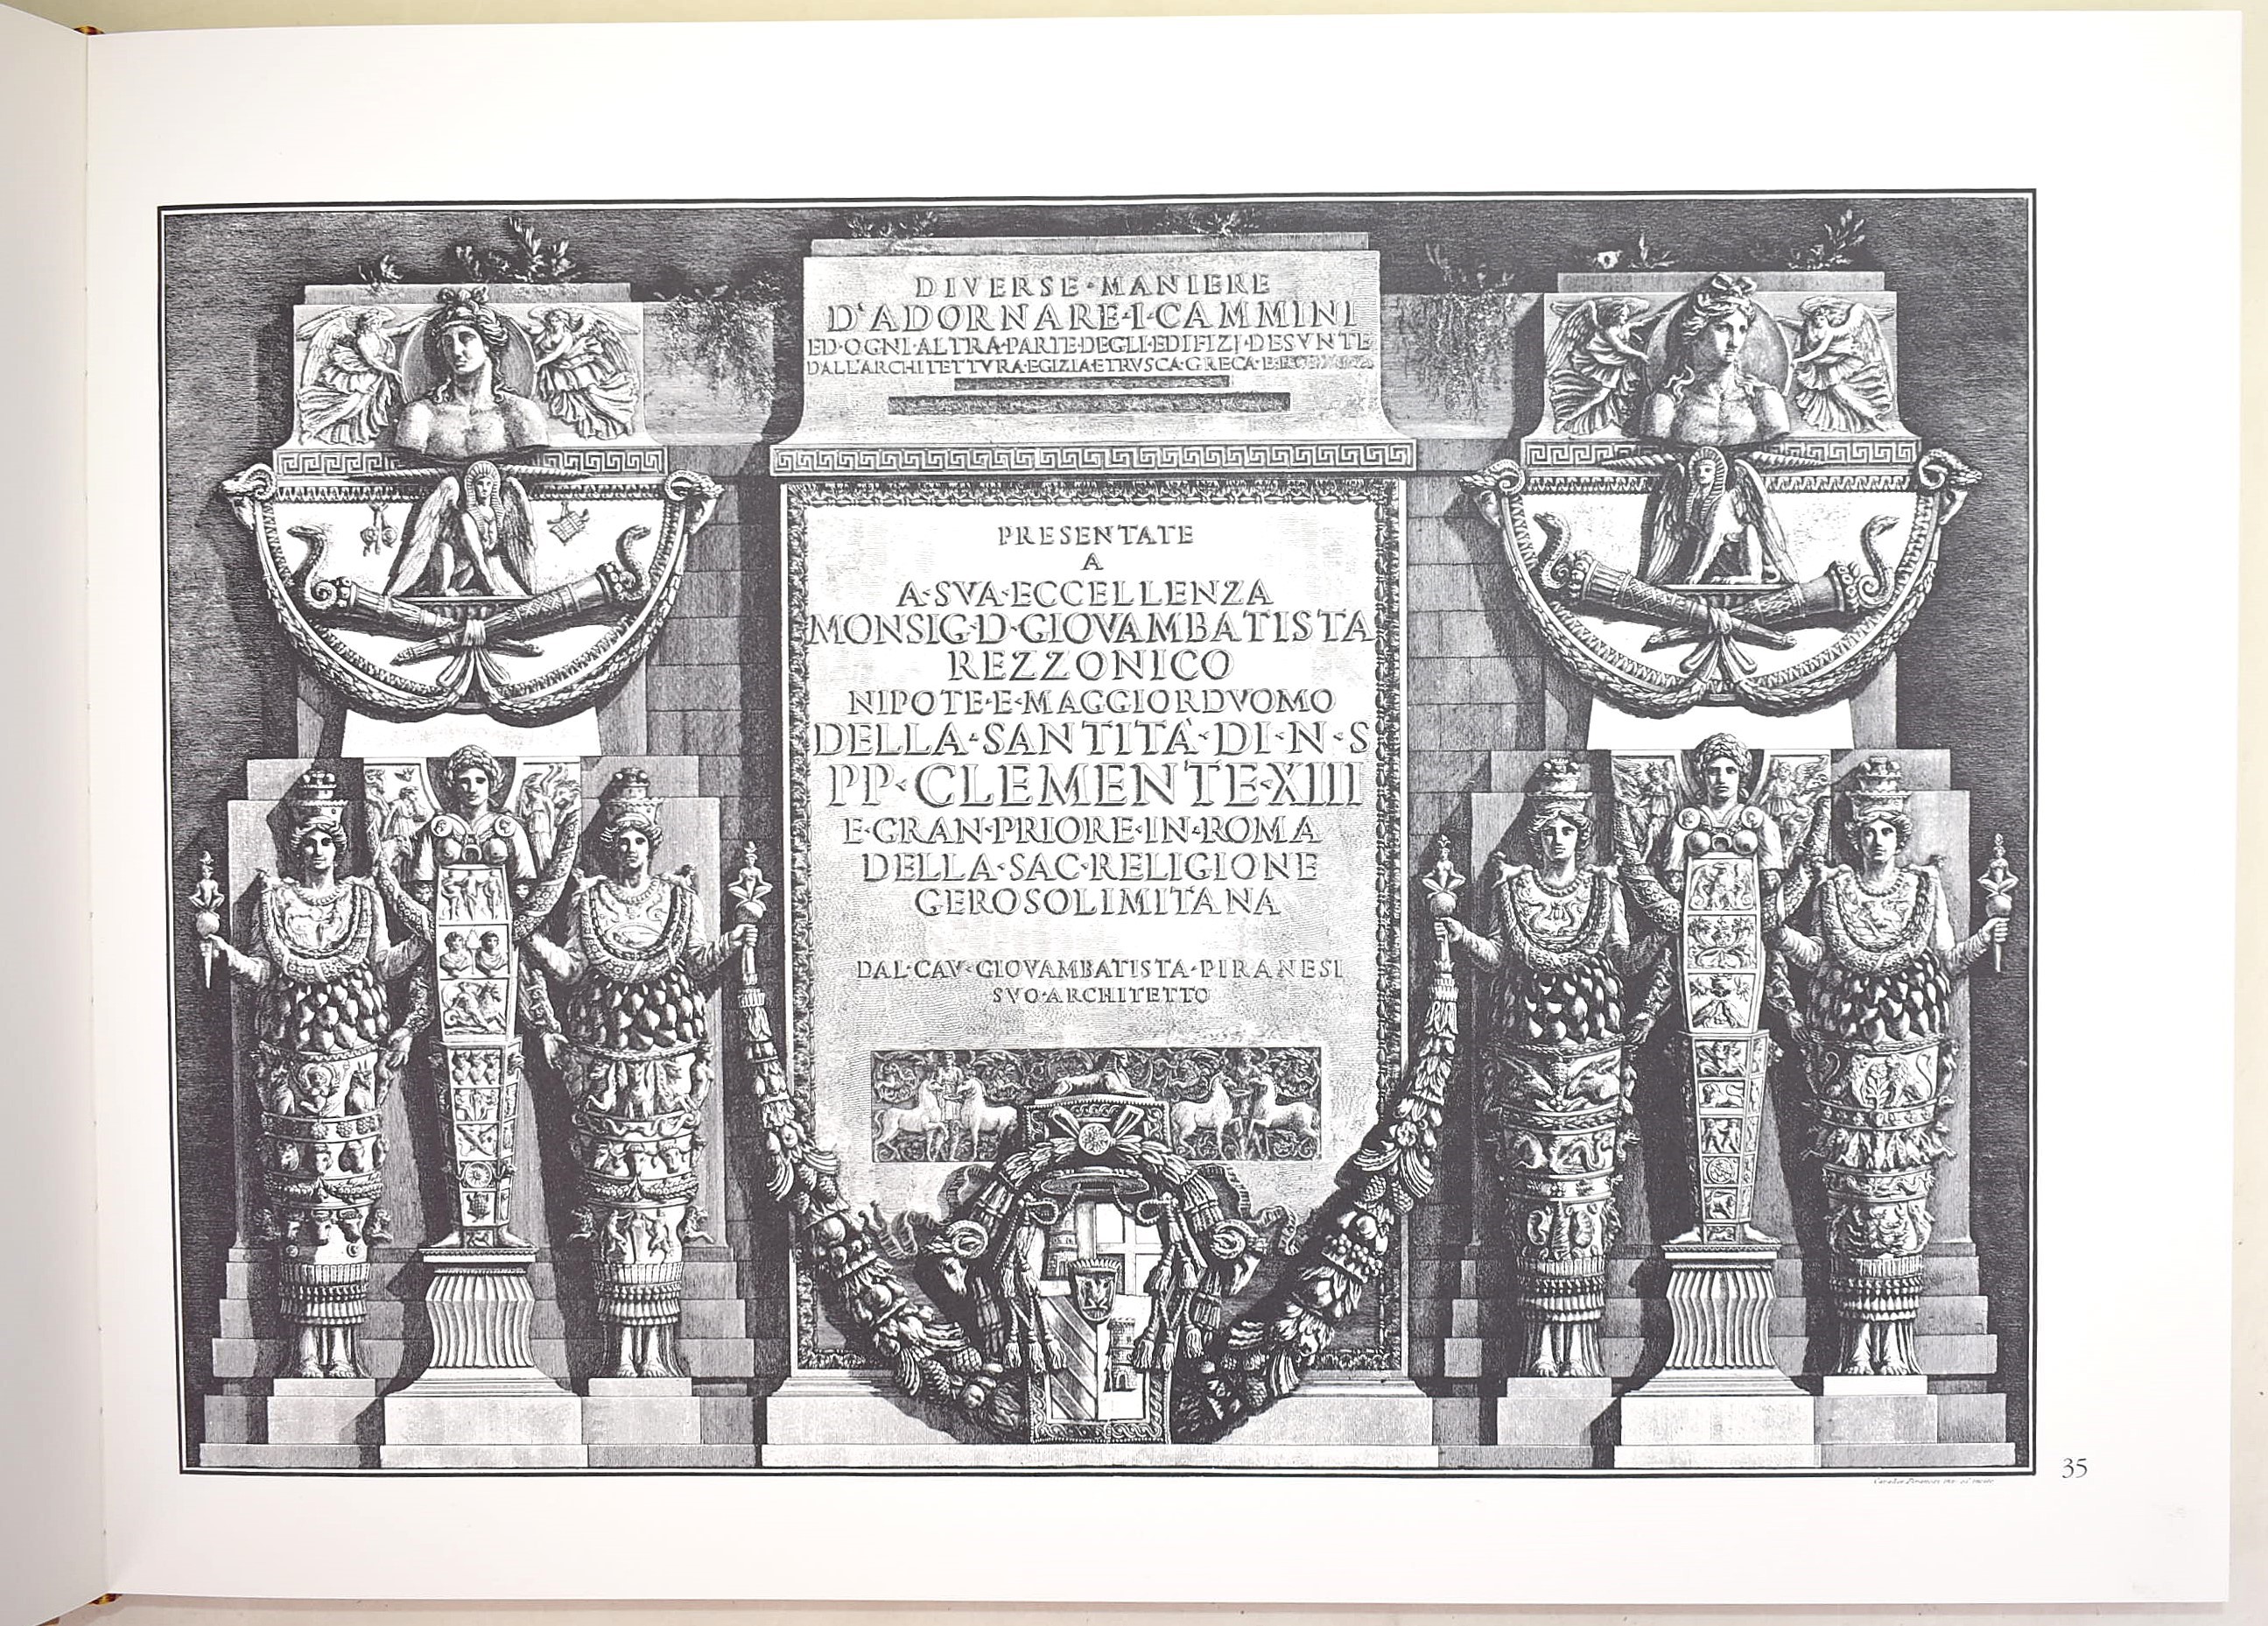 DIVERSE·MANIERE
D'ADORNARE·I·CAMMINI
ED·OGNI·ALTRA·PARTE·DEGLI·EDIFIZI·DESVNTE
DALL'ARCHITETTVRA·EGIZIA·ETRVSCA·GRECA·E
PRESENTATE
A
A·SVA·ECCELLENZA
MONSIG·D·GIOVAMBATISTA
REZZONICO
NIPOTE·E·MAGGIORDVOMO
DELLA·SANTITÀ·DI·N·S
PP·CLEMENTE·XIII
E·GRAN·PRIORE·IN·ROMA
DELLA·SAC·RELIGIONE
GEROSOLIMITANA
DAL·CAV·GIOVAMBATISTA·PIRANESI
SVO·ARCHITETTO
35